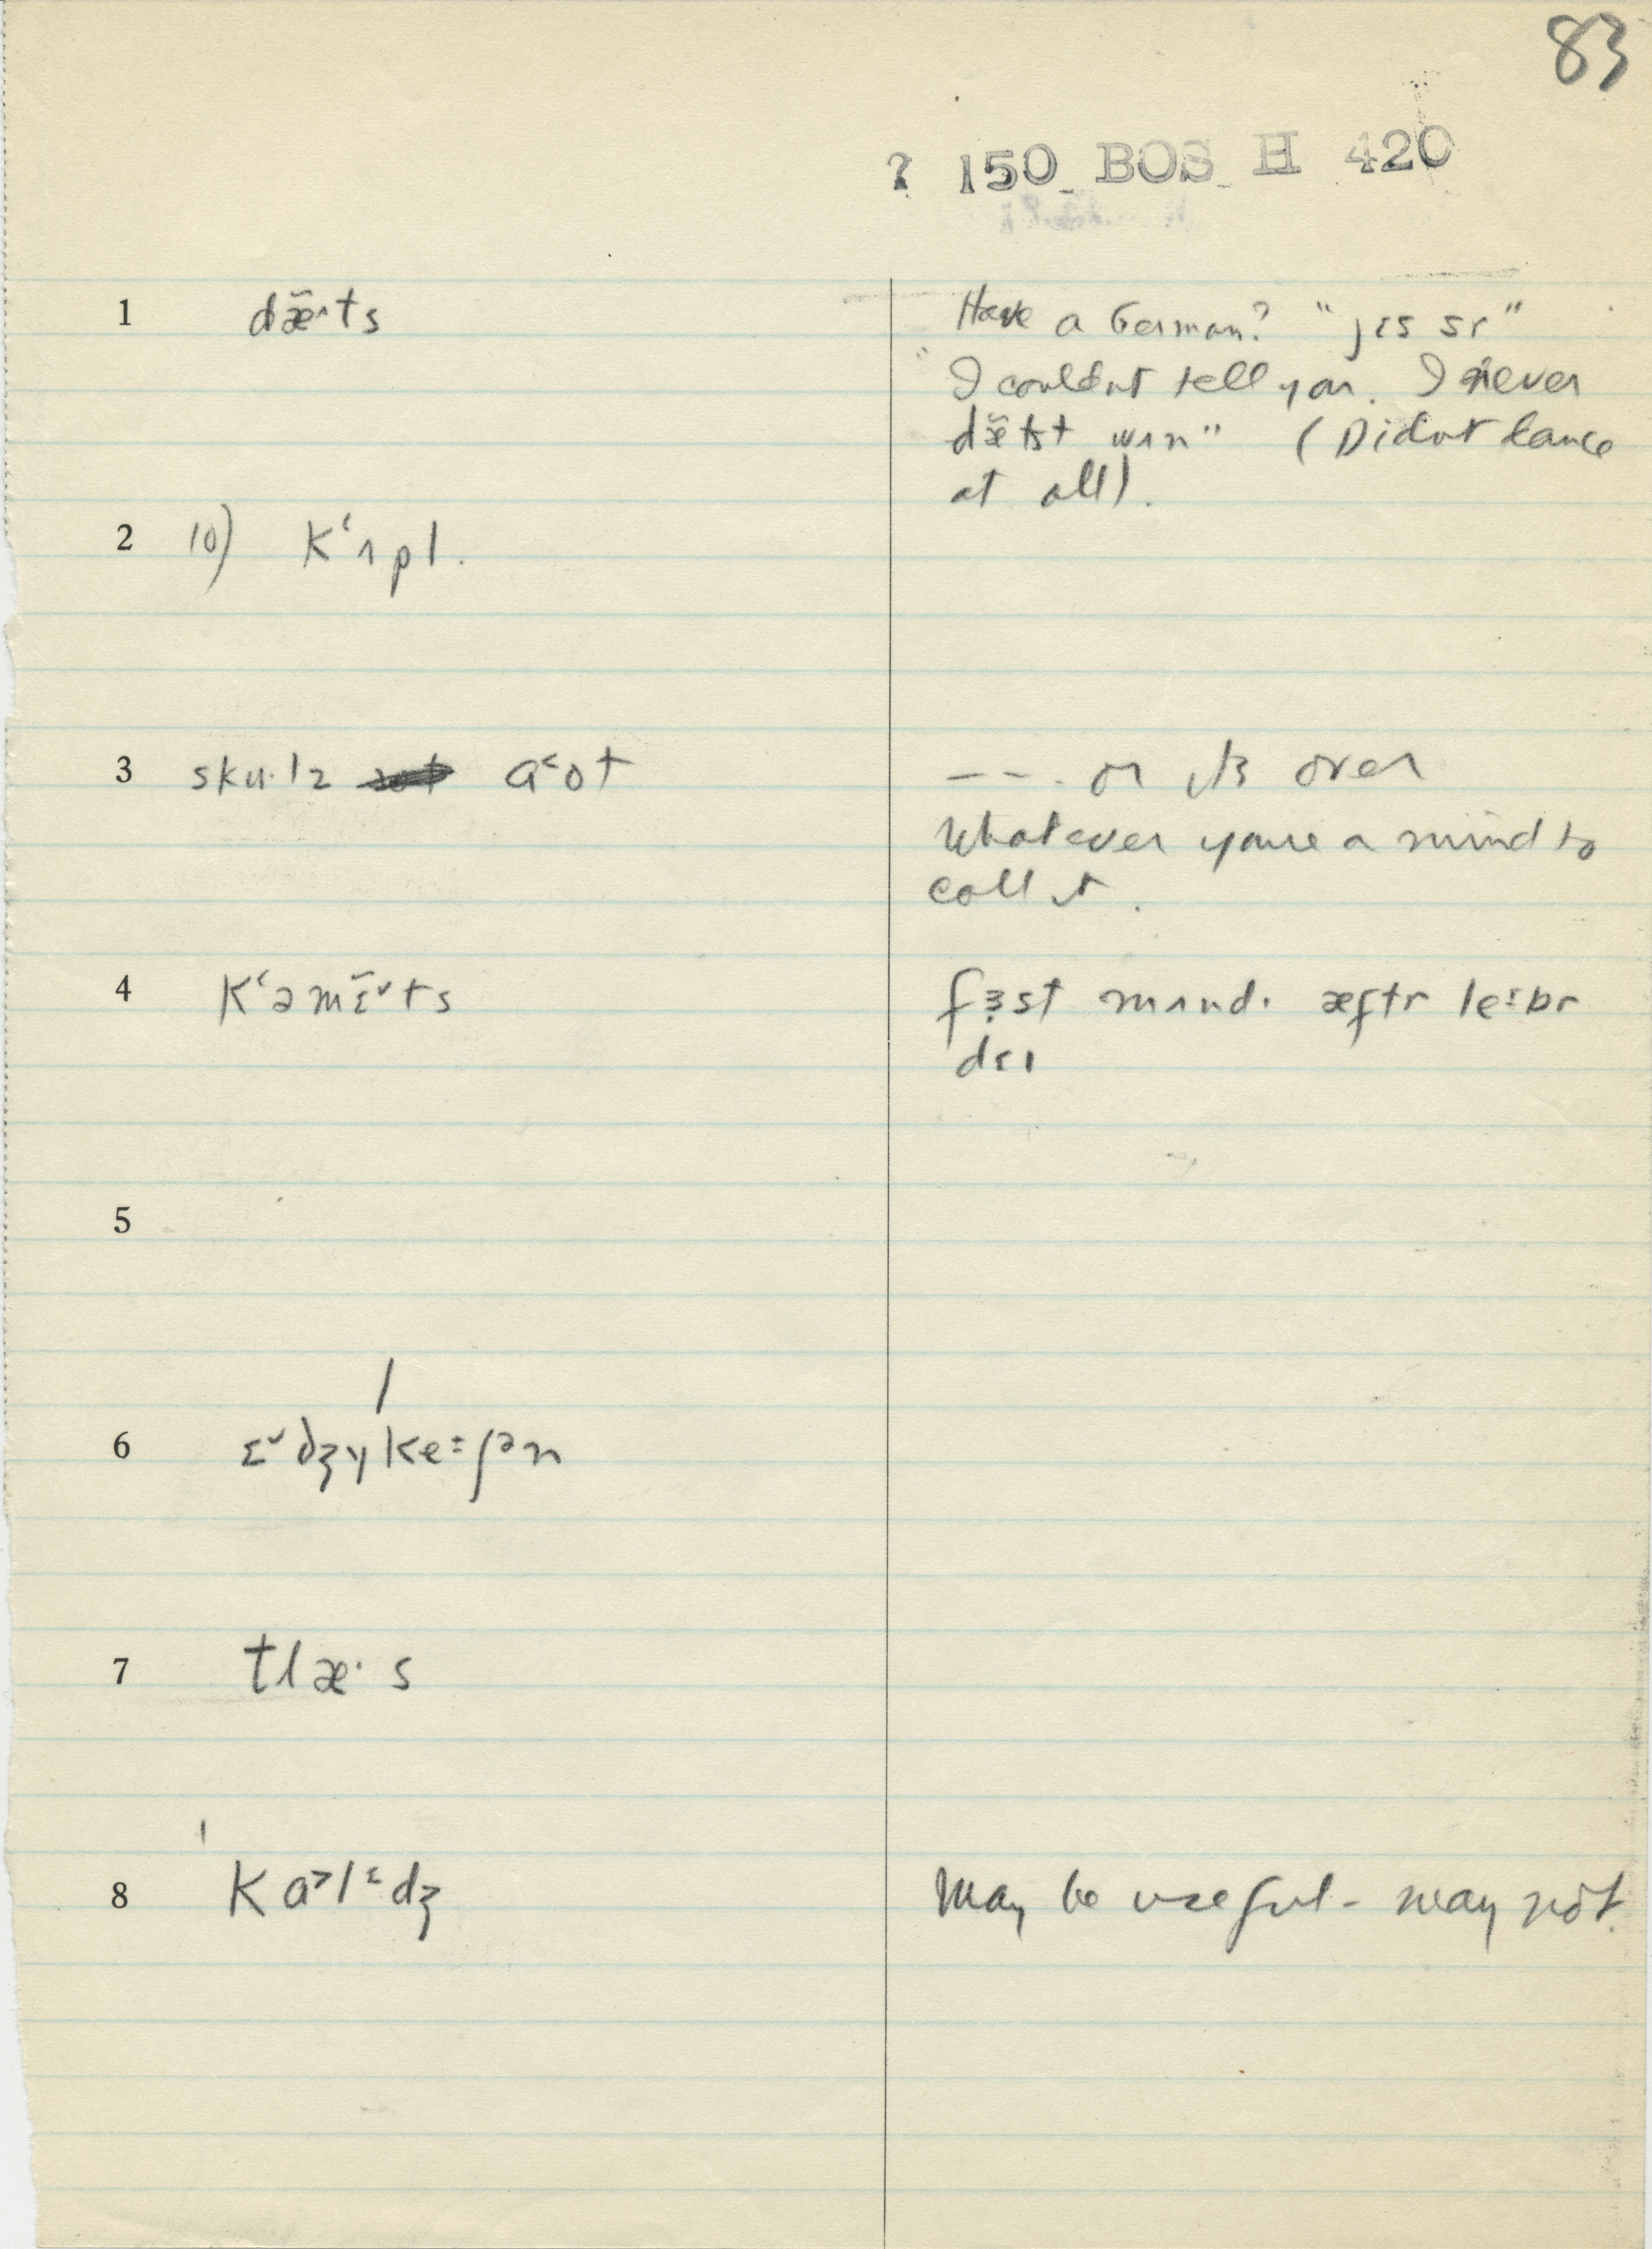 83
? 150 BOS H 420
1 dæ̃ˑts Have a German? "jɛs sr"
"I couldnt tell you. I never
dæ̃tst wʌn" (Didnt dance
at all).
2 10) kʻʌpl.
3 sku·lz a˂ot --- or its over
Whatever youre a mind to
call it.
4 kʻəmɛ̃ˇts fɜst mʌnd· æftr leɪbr
dɛɪ
5
6 ɛˇdʒyke=ʃən
7 tlæ· s
8 ka˃lɪdʒ May be useful - may not.